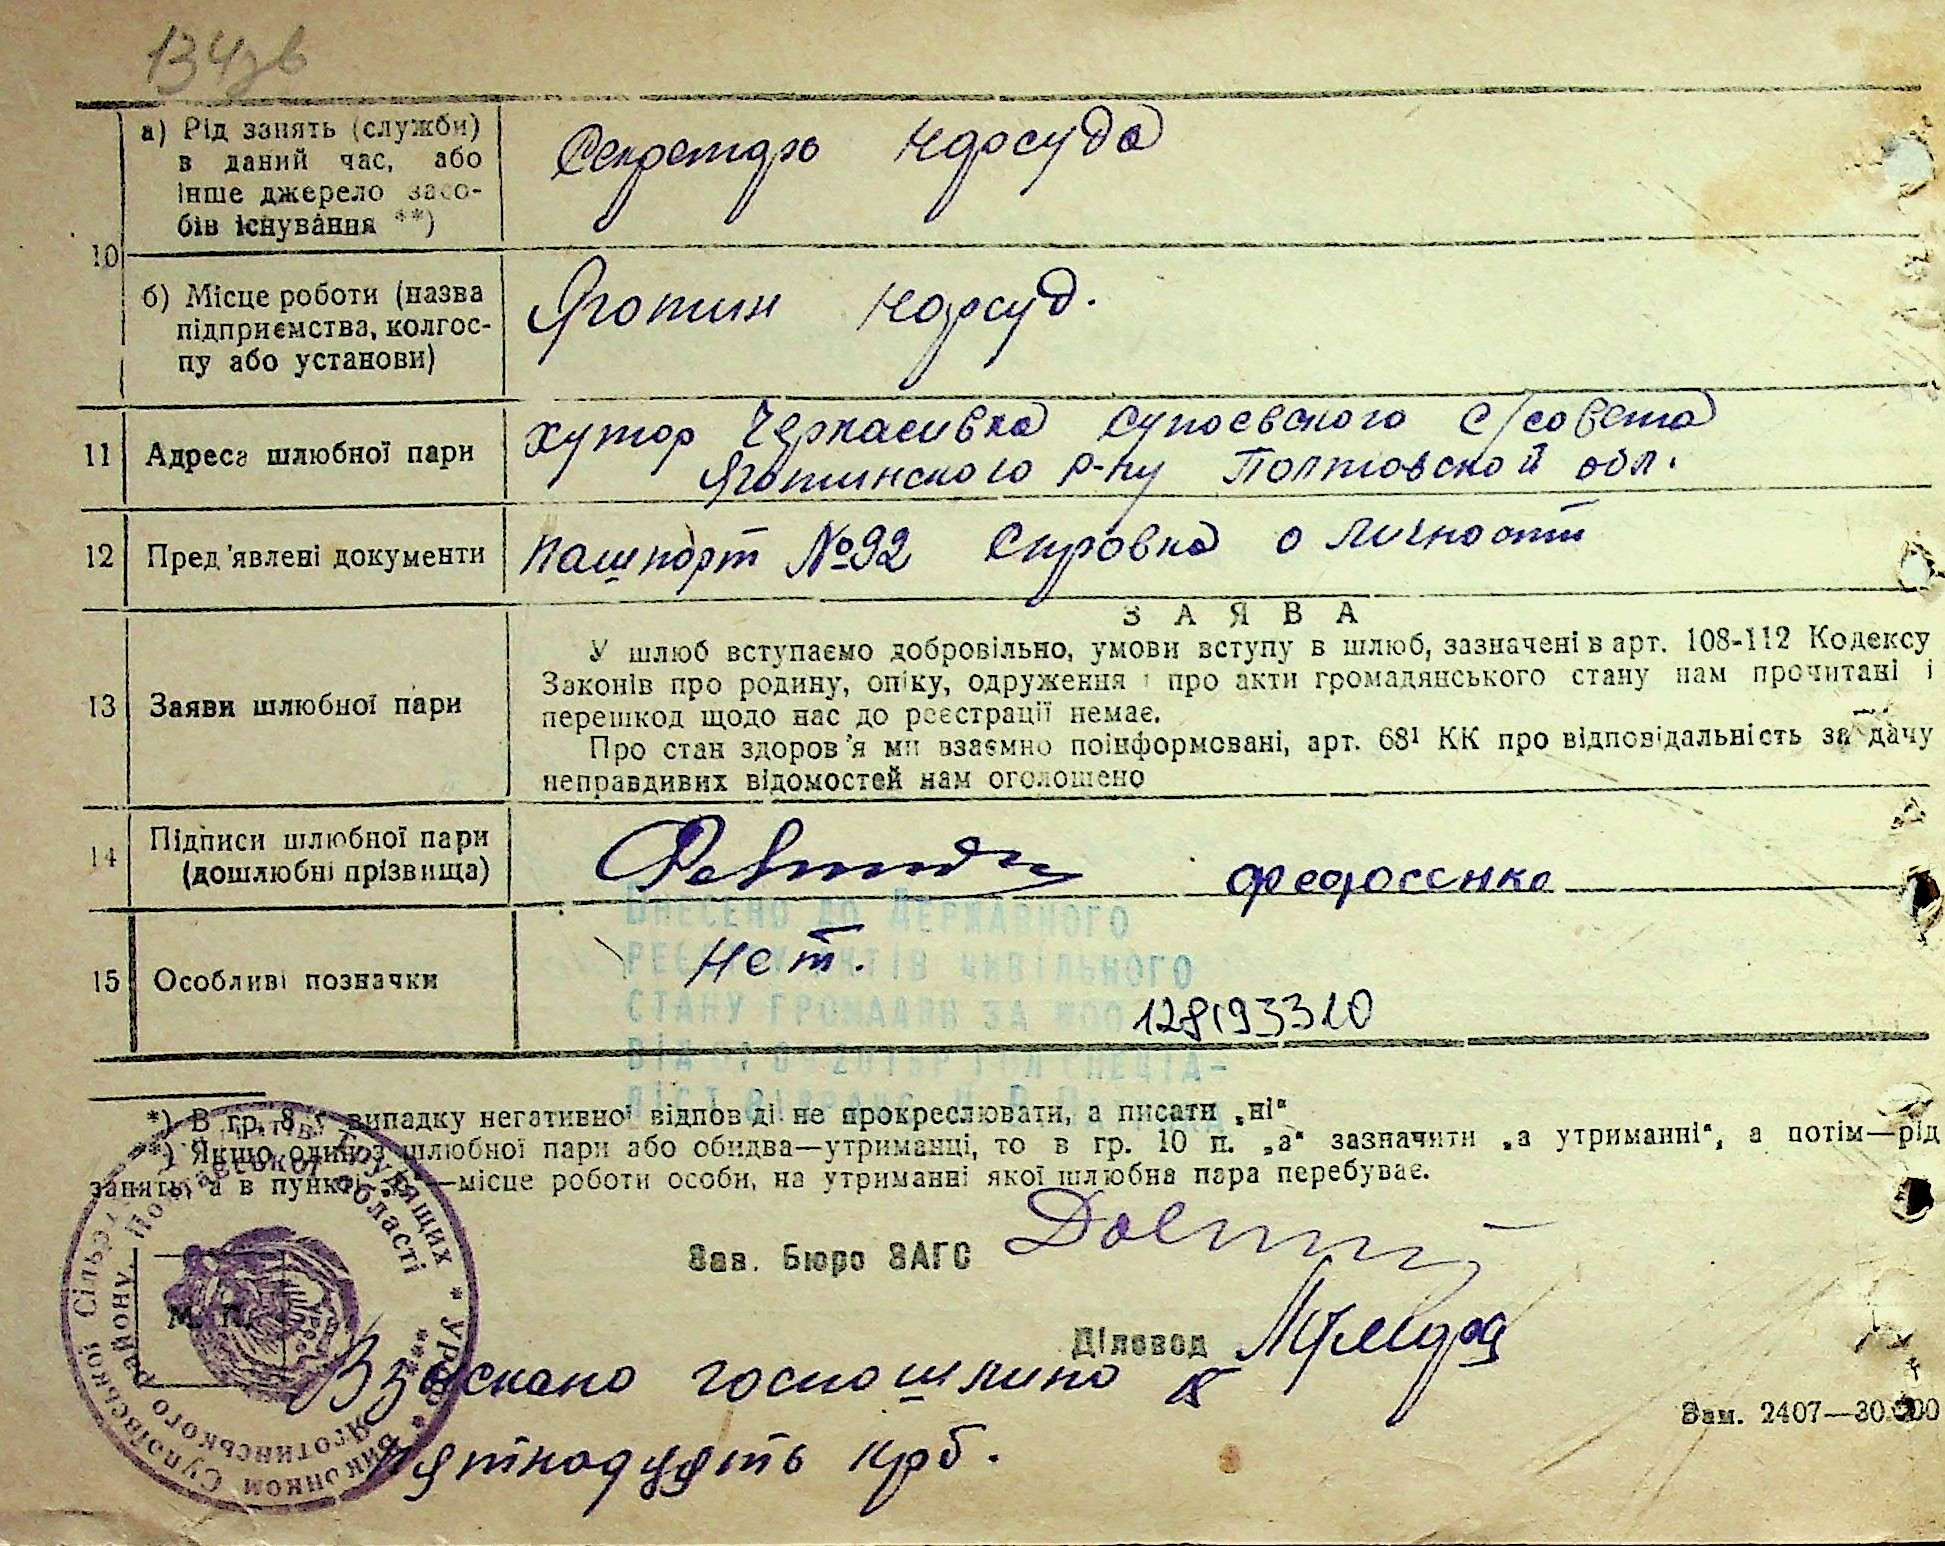 134зв
а) Рід занять (служби)
в даний час, або
інше джерело засо-
бів існування **)
Секретарь Нарсуда
10
б) Місце роботи (назва
підприємства, колгос-
пу або установи)
Яготин Нарсуд.
11 Адреса шлюбної пари
хутор Черкасивка Супоевского с/совета
Яготинского р-ну Полтовской обл.
12 Пред'явлені документи
пашпорт №92 Справка о личности
13 Заяви шлюбної пари
ЗАЯВА
У шлюб вступаємо добровільно, умови вступу в шлюб, зазначені в арт. 108-112 Кодексу
Законів про родину, опіку, одруження і про акти громадянського стану нам прочитані і
перешкод щодо нас до реєстрації немає.
Про стан здоров'я ми взаємно поінформовані, арт. 68¹ КК про відповідальність за дачу
неправдивих відомостей нам оголошено
14 Підписи шлюбної пари
(дошлюбні прізвища)
Федосенко
ВНЕСЕНО ДО ДЕРЖАВНОГО
РЕЄСТРУ АКТІВ ЦИВІЛЬНОГО
СТАНУ ГРОМАДЯН ЗА №00
15 Особливі позначки
Нет.
128193310
*) В гр. 8 у випадку негативної відповіді не прокреслювати, а писати „ні“
**) Якщо один з шлюбної пари або обидва—утриманці, то в гр. 10 п. „а“ зазначити „а утриманні“, а потім—рід
занять, а в пункті „б“—місце роботи особи, на утриманні якої шлюбна пара перебуває.
Зав. Бюро ЗАГС
М. П.
Діловод
Взыскано госпошлино
пятнадцять крб.
Зам. 2407—30.000
Виконком Супоївської Сільради трудящих * УРСР *
Яготинського району, Полтавської області